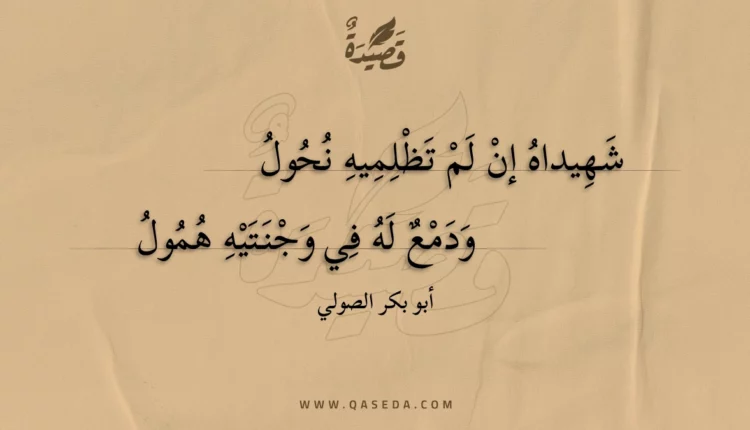 قَصِيدَةٌ
شَهِيداهُ إنْ لَمْ تَظْلِمِيهِ نُحُولُ
وَدَمْعٌ لَهُ فِي وَجْنَتَيْهِ هُمُولُ
أبو بكر الصولي
WWW.QASEDA.COM